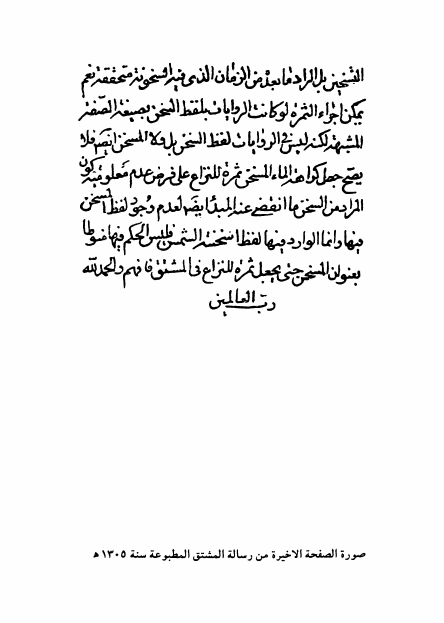 التسخين بل المراد ما بعد من الزمان الذي فيه السخونة متحققة نعم
يمكن اجراء الثمرة لو كانت الروايات بلفظ السخن بصيغة الصفة
المشبهة لكنه ليس في الروايات لفظ السخن بل ولا المسخن ايضا فلا
يصح جعل كراهة الماء المسخن ثمرة للنزاع على فرض عدم معلومية كون
المراد من السخن ما انقضى عنه المبدأ ايضا لعدم وجود لفظ المسخن
فيها وانما الوارد فيها لفظ اسخنته الشمس فليس الحكم فيها منوطا
بعنوان المسخن حتى يجعل ثمرة للنزاع في المشتق فافهم والحمد لله
رب العالمين
صورة الصفحة الاخيرة من رسالة المشتق المطبوعة سنة ١٣٠٥ ه